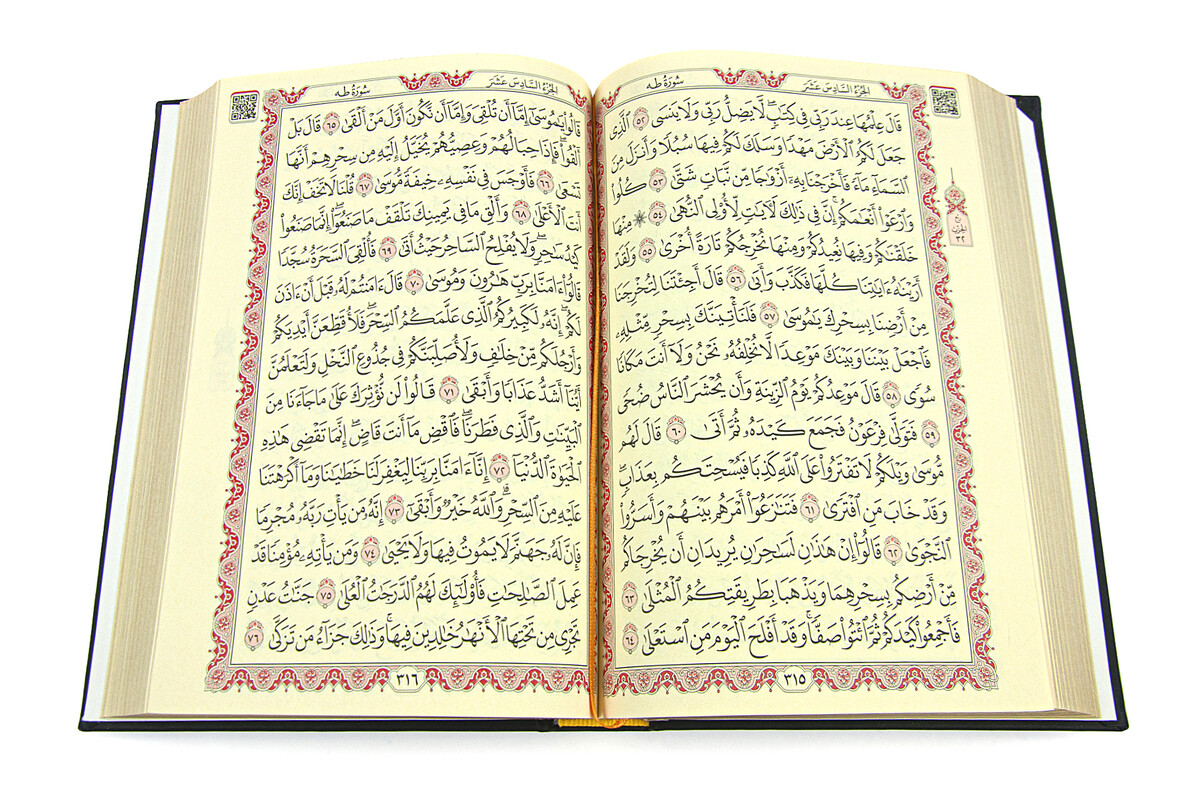 الجزء السادس عشر
سورة طه
قَالَ عِلْمُهَا عِندَ رَبِّي فِي كِتَٰبٍۖ لَّا يَضِلُّ رَبِّي وَلَا يَنسَى ٥٢ ٱلَّذِي
جَعَلَ لَكُمُ ٱلْأَرْضَ مَهْدًا وَسَلَكَ لَكُمْ فِيهَا سُبُلًا وَأَنزَلَ مِنَ
ٱلسَّمَآءِ مَآءً فَأَخْرَجْنَا بِهِۦٓ أَزْوَٰجًا مِّن نَّبَاتٍ شَتَّىٰ ٥٣ كُلُوا۟
وَٱرْعَوْا۟ أَنْعَٰمَكُمْۗ إِنَّ فِي ذَٰلِكَ لَءَايَٰتٍ لِّأُو۟لِي ٱلنُّهَىٰ ٥٤ ۞ مِنْهَا
خَلَقْنَٰكُمْ وَفِيهَا نُعِيدُكُمْ وَمِنْهَا نُخْرِجُكُمْ تَارَةً أُخْرَىٰ ٥٥ وَلَقَدْ
أَرَيْنَٰهُ ءَايَٰتِنَا كُلَّهَا فَكَذَّبَ وَأَبَىٰ ٥٦ قَالَ أَجِئْتَنَا لِتُخْرِجَنَا
مِنْ أَرْضِنَا بِسِحْرِكَ يَٰمُوسَىٰ ٥٧ فَلَنَأْتِيَنَّكَ بِسِحْرٍ مِّثْلِهِۦ
فَٱجْعَلْ بَيْنَنَا وَبَيْنَكَ مَوْعِدًا لَّا نُخْلِفُهُۥ نَحْنُ وَلَآ أَنتَ مَكَانًا
سُوًى ٥٨ قَالَ مَوْعِدُكُمْ يَوْمُ ٱلزِّينَةِ وَأَن يُحْشَرَ ٱلنَّاسُ ضُحًى
٥٩ فَتَوَلَّىٰ فِرْعَوْنُ فَجَمَعَ كَيْدَهُۥ ثُمَّ أَتَىٰ ٦٠ قَالَ لَهُم
مُّوسَىٰ وَيْلَكُمْ لَا تَفْتَرُوا۟ عَلَى ٱللَّهِ كَذِبًا فَيُسْحِتَكُم بِعَذَابٍۖ
وَقَدْ خَابَ مَنِ ٱفْتَرَىٰ ٦١ فَتَنَٰزَعُوٓا۟ أَمْرَهُم بَيْنَهُمْ وَأَسَرُّوا۟
ٱلنَّجْوَىٰ ٦٢ قَالُوٓا۟ إِنْ هَٰذَٰنِ لَسَٰحِرَٰنِ يُرِيدَانِ أَن يُخْرِجَاكُم
مِّنْ أَرْضِكُم بِسِحْرِهِمَا وَيَذْهَبَا بِطَرِيقَتِكُمُ ٱلْمُثْلَىٰ ٦٣
فَأَجْمِعُوا۟ كَيْدَكُمْ ثُمَّ ٱئْتُوا۟ صَفًّاۚ وَقَدْ أَفْلَحَ ٱلْيَوْمَ مَنِ ٱسْتَعْلَىٰ ٦٤
٣١٥
الحزب
٣٢
الجزء السادس عشر
سورة طه
قَالُوا۟ يَٰمُوسَىٰٓ إِمَّآ أَن تُلْقِيَ وَإِمَّآ أَن نَّكُونَ أَوَّلَ مَنْ أَلْقَىٰ ٦٥ قَالَ بَلْ
أَلْقُوا۟ۖ فَإِذَا حِبَالُهُمْ وَعِصِيُّهُمْ يُخَيَّلُ إِلَيْهِ مِن سِحْرِهِمْ أَنَّهَا
تَسْعَىٰ ٦٦ فَأَوْجَسَ فِي نَفْسِهِۦ خِيفَةً مُّوسَىٰ ٦٧ قُلْنَا لَا تَخَفْ إِنَّكَ
أَنتَ ٱلْأَعْلَىٰ ٦٨ وَأَلْقِ مَا فِي يَمِينِكَ تَلْقَفْ مَا صَنَعُوٓا۟ۖ إِنَّمَا صَنَعُوا۟
كَيْدُ سَٰحِرٍۖ وَلَا يُفْلِحُ ٱلسَّاحِرُ حَيْثُ أَتَىٰ ٦٩ فَأُلْقِيَ ٱلسَّحَرَةُ سُجَّدًا
قَالُوٓا۟ ءَامَنَّا بِرَبِّ هَٰرُونَ وَمُوسَىٰ ٧٠ قَالَ ءَامَنتُمْ لَهُۥ قَبْلَ أَنْ ءَاذَنَ
لَكُمْۖ إِنَّهُۥ لَكَبِيرُكُمُ ٱلَّذِي عَلَّمَكُمُ ٱلسِّحْرَۖ فَلَأُقَطِّعَنَّ أَيْدِيَكُمْ
وَأَرْجُلَكُم مِّنْ خِلَٰفٍ وَلَأُصَلِّبَنَّكُمْ فِي جُذُوعِ ٱلنَّخْلِ وَلَتَعْلَمُنَّ
أَيُّنَآ أَشَدُّ عَذَابًا وَأَبْقَىٰ ٧١ قَالُوا۟ لَن نُّؤْثِرَكَ عَلَىٰ مَا جَآءَنَا مِنَ
ٱلْبَيِّنَٰتِ وَٱلَّذِي فَطَرَنَاۖ فَٱقْضِ مَآ أَنتَ قَاضٍۖ إِنَّمَا تَقْضِي هَٰذِهِ
ٱلْحَيَوٰةَ ٱلدُّنْيَآ ٧٢ إِنَّآ ءَامَنَّا بِرَبِّنَا لِيَغْفِرَ لَنَا خَطَٰيَٰنَا وَمَآ أَكْرَهْتَنَا
عَلَيْهِ مِنَ ٱلسِّحْرِۗ وَٱللَّهُ خَيْرٌ وَأَبْقَىٰٓ ٧٣ إِنَّهُۥ مَن يَأْتِ رَبَّهُۥ مُجْرِمًا
فَإِنَّ لَهُۥ جَهَنَّمَ لَا يَمُوتُ فِيهَا وَلَا يَحْيَىٰ ٧٤ وَمَن يَأْتِهِۦ مُؤْمِنًا قَدْ
عَمِلَ ٱلصَّٰلِحَٰتِ فَأُو۟لَٰٓئِكَ لَهُمُ ٱلدَّرَجَٰتُ ٱلْعُلَىٰ ٧٥ جَنَّٰتُ عَدْنٍ
تَجْرِي مِن تَحْتِهَا ٱلْأَنْهَٰرُ خَٰلِدِينَ فِيهَاۚ وَذَٰلِكَ جَزَآءُ مَن تَزَكَّىٰ ٧٦
٣١٦